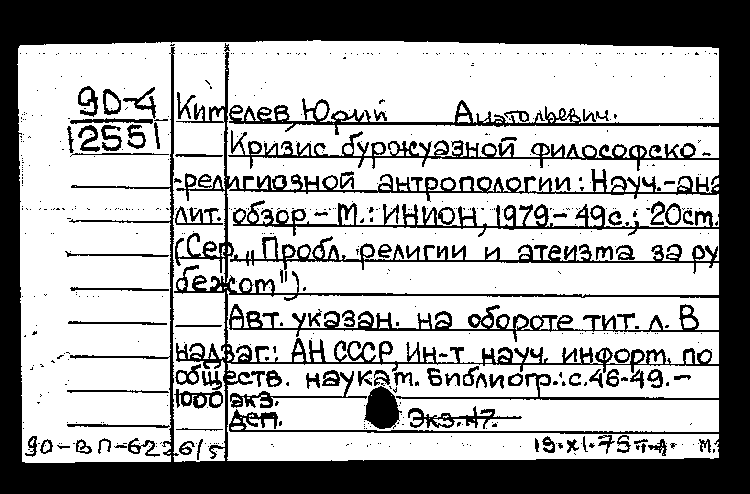 9D-4 Кимелев, Юрий Анатольевич.
255 Кризис буржуазной философско-
-религиозной антропологии: Науч.-ана
лит. обзор. - М.: ИНИОН, 1979. - 49с.; 20см.
(Сер. „Пробл. религии и атеизма за ру
бежом").
Авт. указан. на обороте тит. л. В
надзаг.: АН СССР, Ин-т науч. информ. по
обществ. наукам. Библиогр.: с. 46-49. -
1000 экз.
Деп. Экз. 47.
9D-ВП-6226/5 19.XI.79